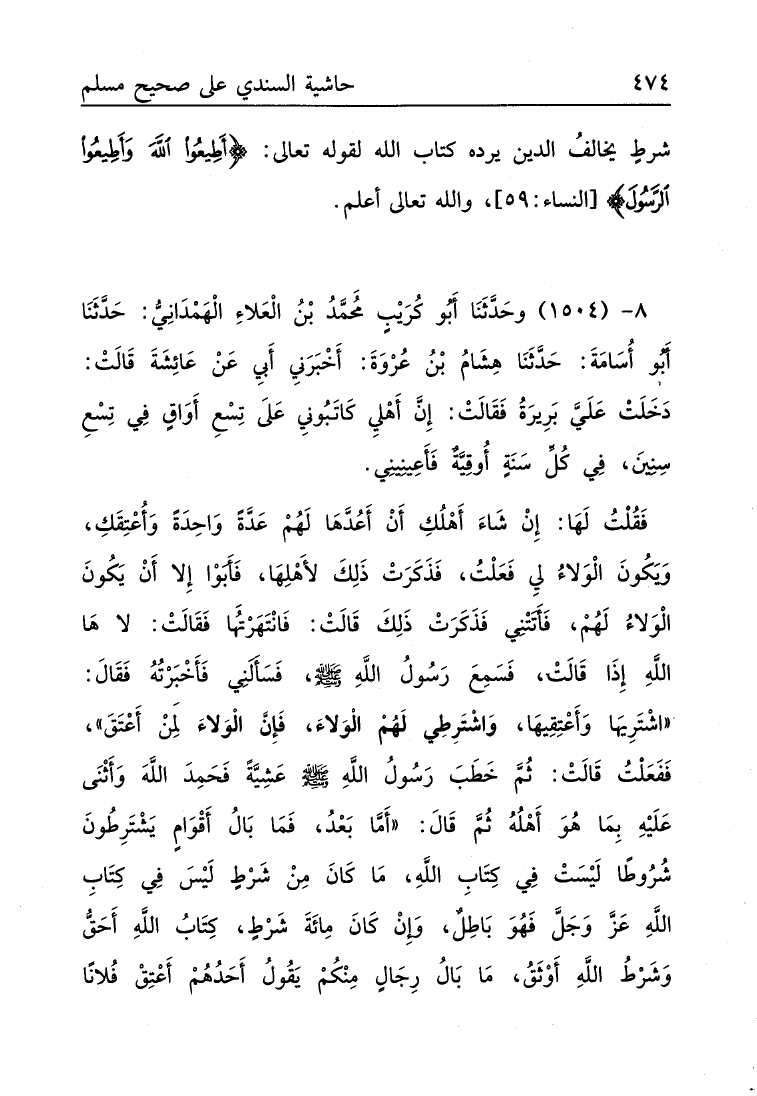 ٤٧٤ حاشية السندي على صحيح مسلم
شرطٍ يخالفُ الدين يرده كتاب الله لقوله تعالى: ﴿أَطِيعُوا۟ ٱللَّهَ وَأَطِيعُوا۟
ٱلرَّسُولَ﴾ [النساء:٥٩]، والله تعالى أعلم.
٨- (١٥٠٤) وحَدَّثَنَا أَبُو كُرَيْبٍ مُحَمَّدُ بْنُ الْعَلاءِ الْهَمْدَانِيُّ: حَدَّثَنَا
أَبُو أُسَامَةَ: حَدَّثَنَا هِشَامُ بْنُ عُرْوَةَ: أَخْبَرَنِي أَبِي عَنْ عَائِشَةَ قَالَتْ:
دَخَلَتْ عَلَيَّ بَرِيرَةُ فَقَالَتْ: إِنَّ أَهْلِي كَاتَبُونِي عَلَى تِسْعِ أَوَاقٍ فِي تِسْعِ
سِنِينَ، فِي كُلِّ سَنَةٍ أُوقِيَّةٌ فَأَعِينِينِي.
فَقُلْتُ لَهَا: إِنْ شَاءَ أَهْلُكِ أَنْ أَعُدَّهَا لَهُمْ عَدَّةً وَاحِدَةً وَأُعْتِقَكِ،
وَيَكُونَ الْوَلاءُ لِي فَعَلْتُ، فَذَكَرَتْ ذَلِكَ لأَهْلِهَا، فَأَبَوْا إِلا أَنْ يَكُونَ
الْوَلاءُ لَهُمْ، فَأَتَتْنِي فَذَكَرَتْ ذَلِكَ قَالَتْ: فَانْتَهَرْتُهَا فَقَالَتْ: لا هَا
اللَّهِ إِذَا قَالَتْ، فَسَمِعَ رَسُولُ اللَّهِ ﷺ، فَسَأَلَنِي فَأَخْبَرْتُهُ فَقَالَ:
«اشْتَرِيهَا وَأَعْتِقِيهَا، وَاشْتَرِطِي لَهُمُ الْوَلاءَ، فَإِنَّ الْوَلاءَ لِمَنْ أَعْتَقَ»،
فَفَعَلْتُ قَالَتْ: ثُمَّ خَطَبَ رَسُولُ اللَّهِ ﷺ عَشِيَّةً فَحَمِدَ اللَّهَ وَأَثْنَى
عَلَيْهِ بِمَا هُوَ أَهْلُهُ ثُمَّ قَالَ: «أَمَّا بَعْدُ، فَمَا بَالُ أَقْوَامٍ يَشْتَرِطُونَ
شُرُوطًا لَيْسَتْ فِي كِتَابِ اللَّهِ، مَا كَانَ مِنْ شَرْطٍ لَيْسَ فِي كِتَابِ
اللَّهِ عَزَّ وَجَلَّ فَهُوَ بَاطِلٌ، وَإِنْ كَانَ مِائَةَ شَرْطٍ، كِتَابُ اللَّهِ أَحَقُّ
وَشَرْطُ اللَّهِ أَوْثَقُ، مَا بَالُ رِجَالٍ مِنْكُمْ يَقُولُ أَحَدُهُمْ أَعْتِقْ فُلانًا